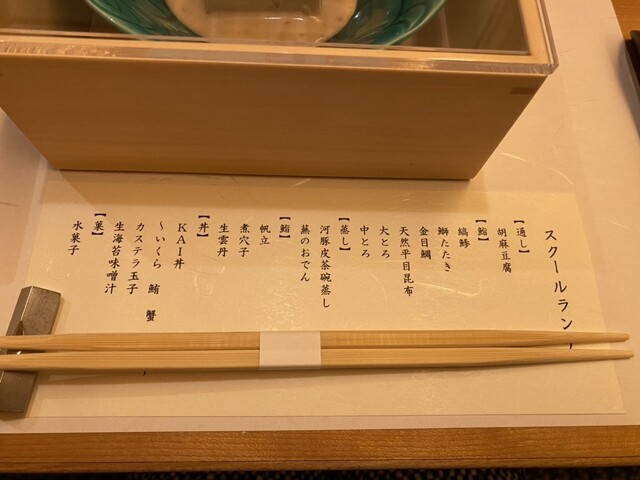 スクールラン
【通し】
胡麻豆腐
【鮨】
縞鯵
鰤たたき
金目鯛
天然平目昆布
大とろ
中とろ
【蒸し】
河豚皮茶碗蒸し
蕪のおでん
【鮨】
帆立
煮穴子
生雲丹
【丼】
KAI丼
～いくら 鮪 蟹
カステラ玉子
生海苔味噌汁
【菓】
水菓子